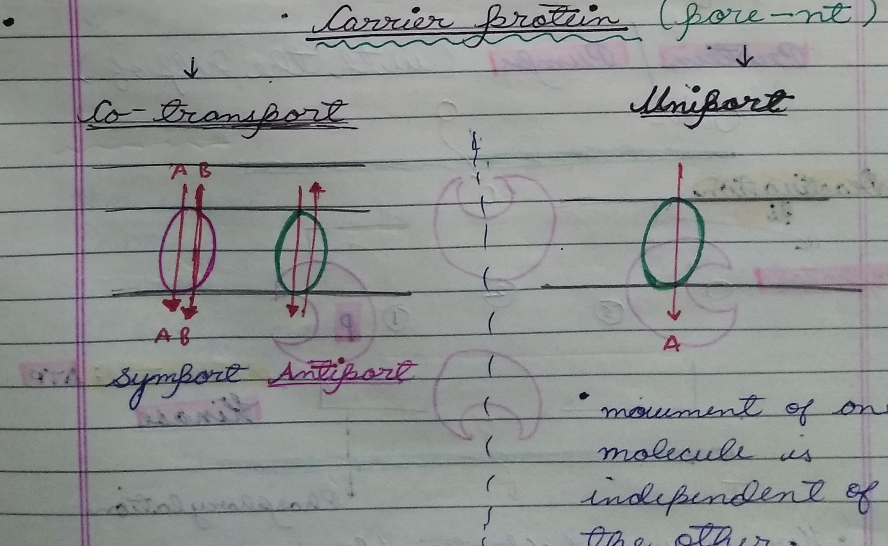 Carrier protein (pore-nt)
Co-transport
Uniport
A B
A B
A
Symport Antiport
• movment of on
molecule is
independent of
the other.